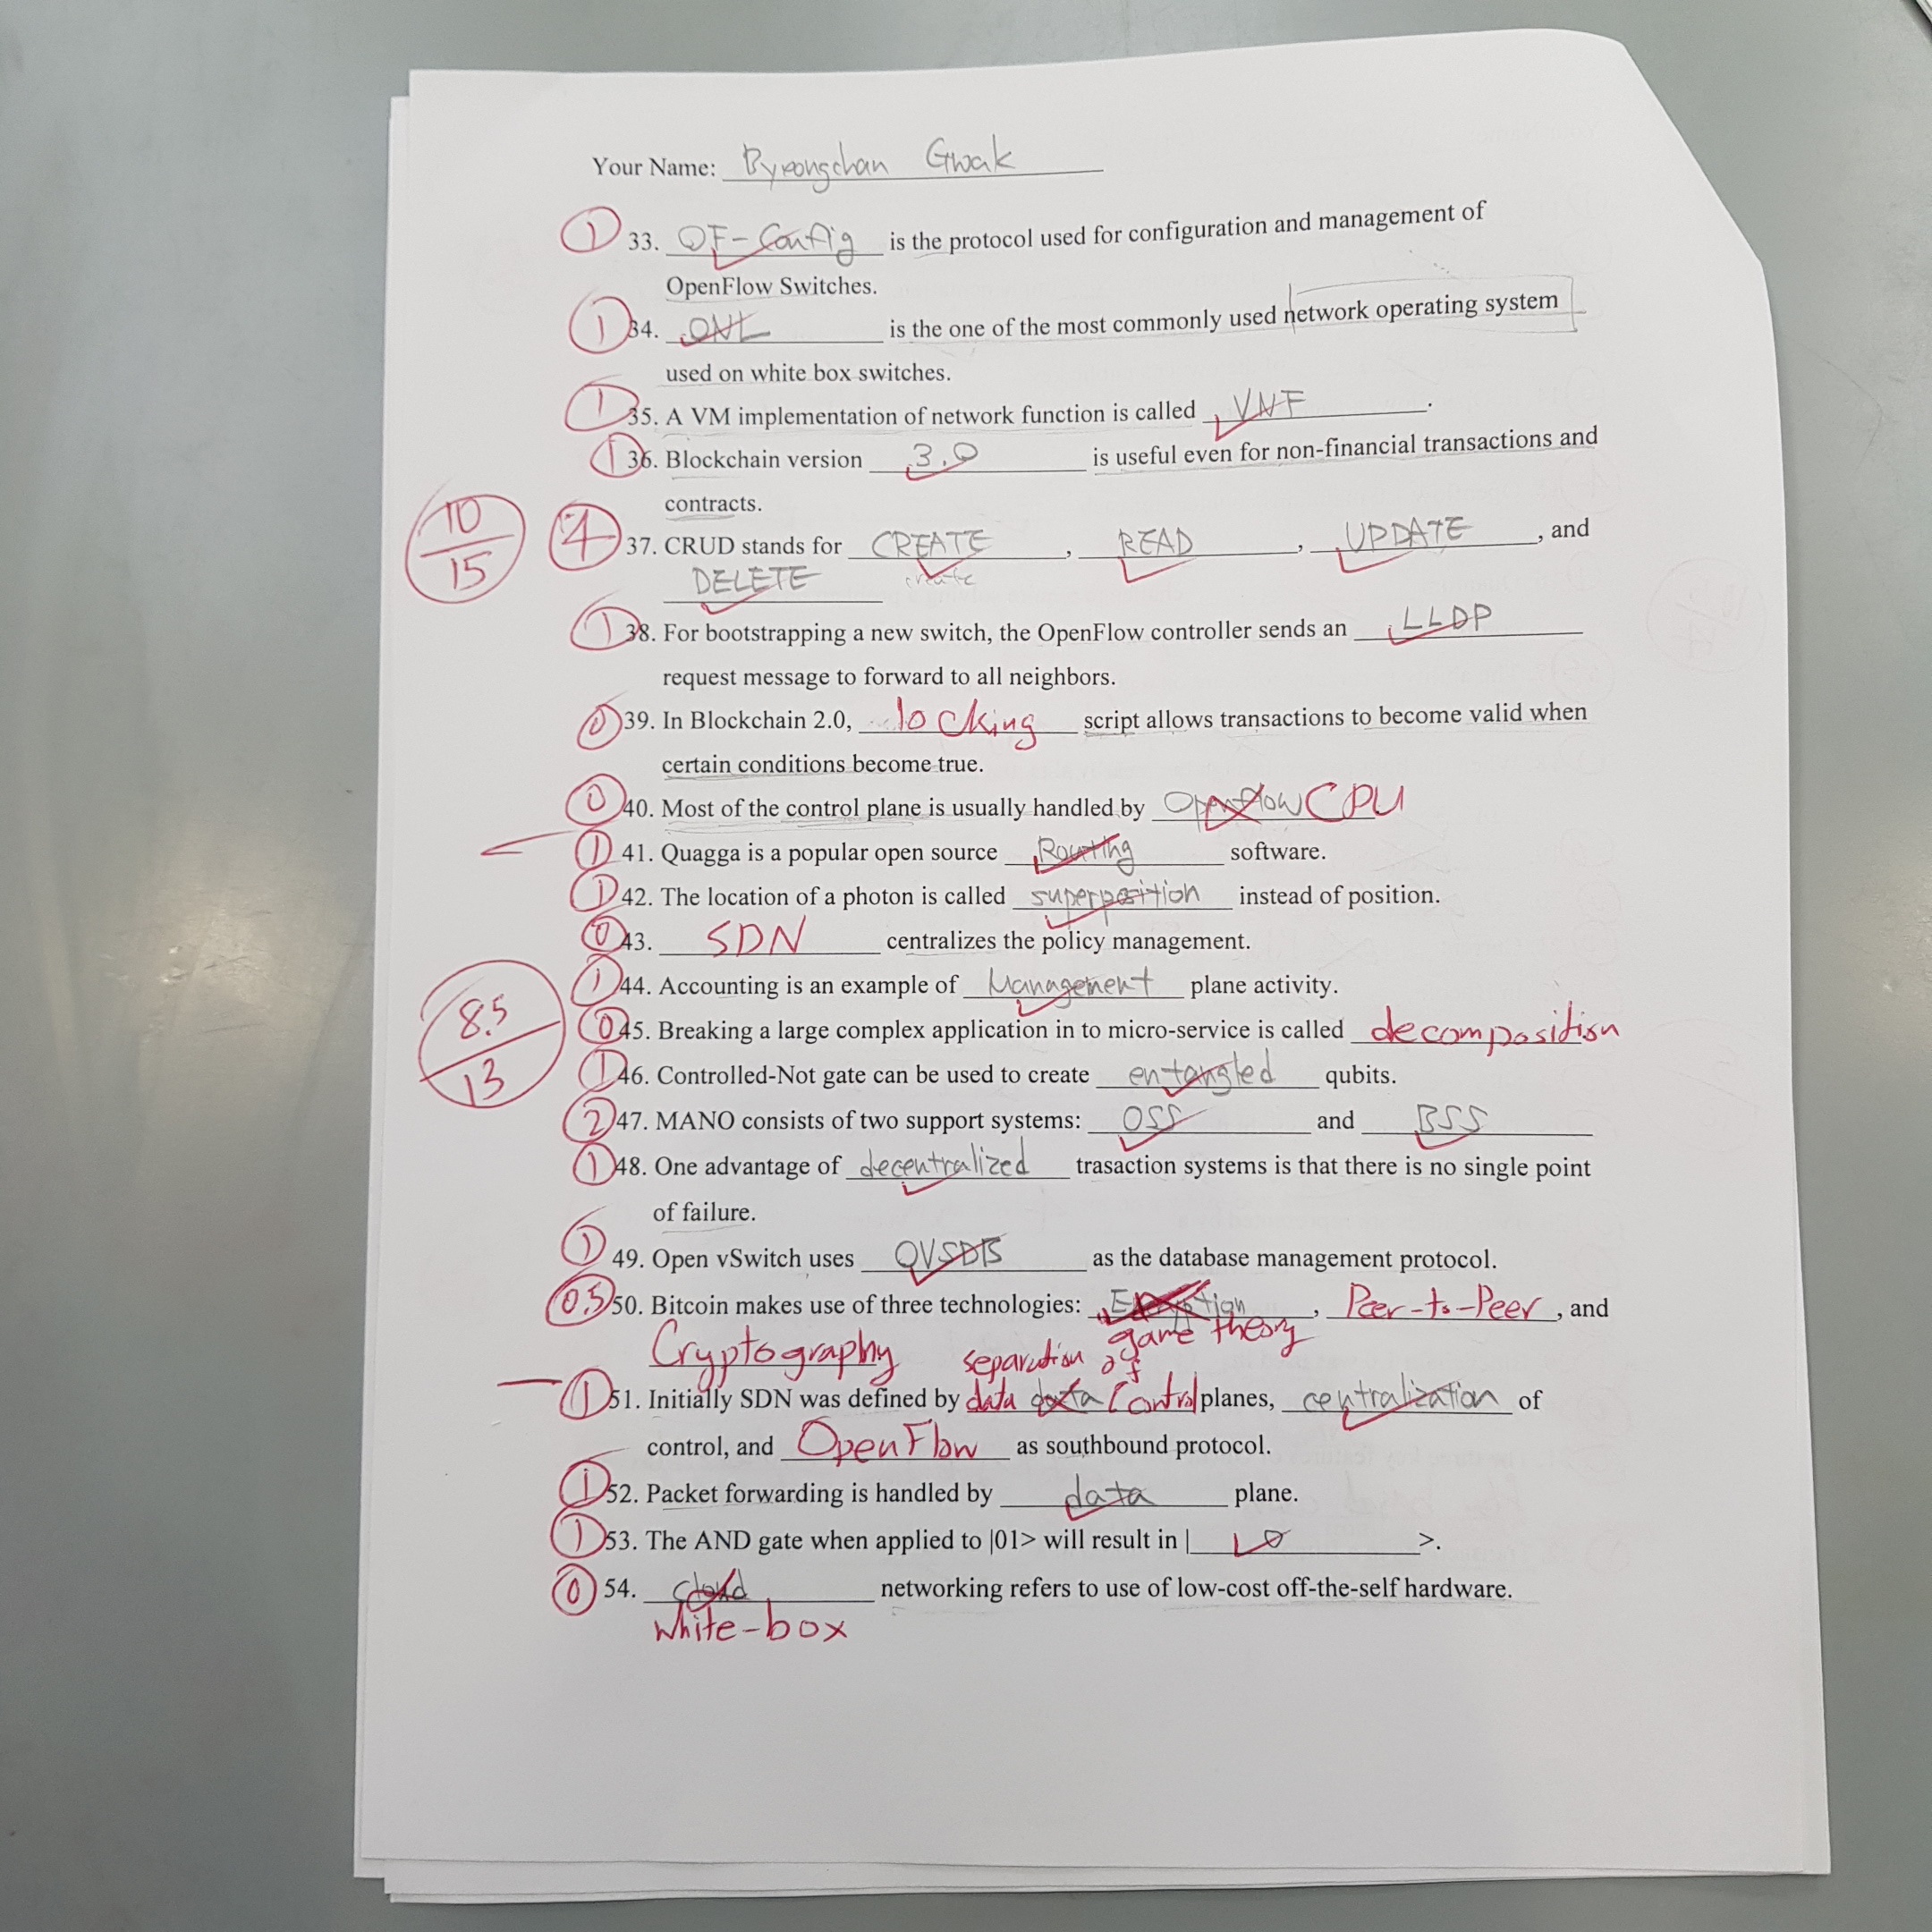 Your Name: Byeongchan Gwak
1 33. OF-Config is the protocol used for configuration and management of
OpenFlow Switches.
1 34. ONL is the one of the most commonly used network operating system
used on white box switches.
1 35. A VM implementation of network function is called VNF.
1 36. Blockchain version 3.0 is useful even for non-financial transactions and
contracts.
10/15 4 37. CRUD stands for CREATE, READ, UPDATE, and
DELETE create
1 38. For bootstrapping a new switch, the OpenFlow controller sends an LLDP
request message to forward to all neighbors.
0 39. In Blockchain 2.0, locking script allows transactions to become valid when
certain conditions become true.
0 40. Most of the control plane is usually handled by Openflow CPU
1 41. Quagga is a popular open source Routing software.
1 42. The location of a photon is called superposition instead of position.
0 43. SDN centralizes the policy management.
1 44. Accounting is an example of Management plane activity.
8.5/13 0 45. Breaking a large complex application in to micro-service is called decomposition
1 46. Controlled-Not gate can be used to create entangled qubits.
2 47. MANO consists of two support systems: OSS and BSS
1 48. One advantage of decentralized trasaction systems is that there is no single point
of failure.
1 49. Open vSwitch uses OVSDB as the database management protocol.
0.5 50. Bitcoin makes use of three technologies: , Peer-to-Peer, and
game theory
Cryptography separation of
1 51. Initially SDN was defined by data data Control planes, centralization of
control, and OpenFlow as southbound protocol.
1 52. Packet forwarding is handled by data plane.
1 53. The AND gate when applied to |01> will result in |0>.
0 54. cloud networking refers to use of low-cost off-the-self hardware.
white-box